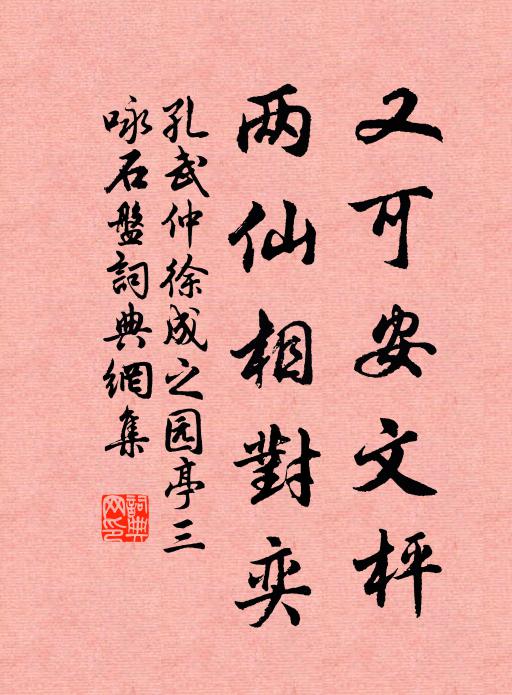 又可安文枰
两仙相對奕
孔武仲徐成之园亭三
咏石盤詞典網集
詞典网印